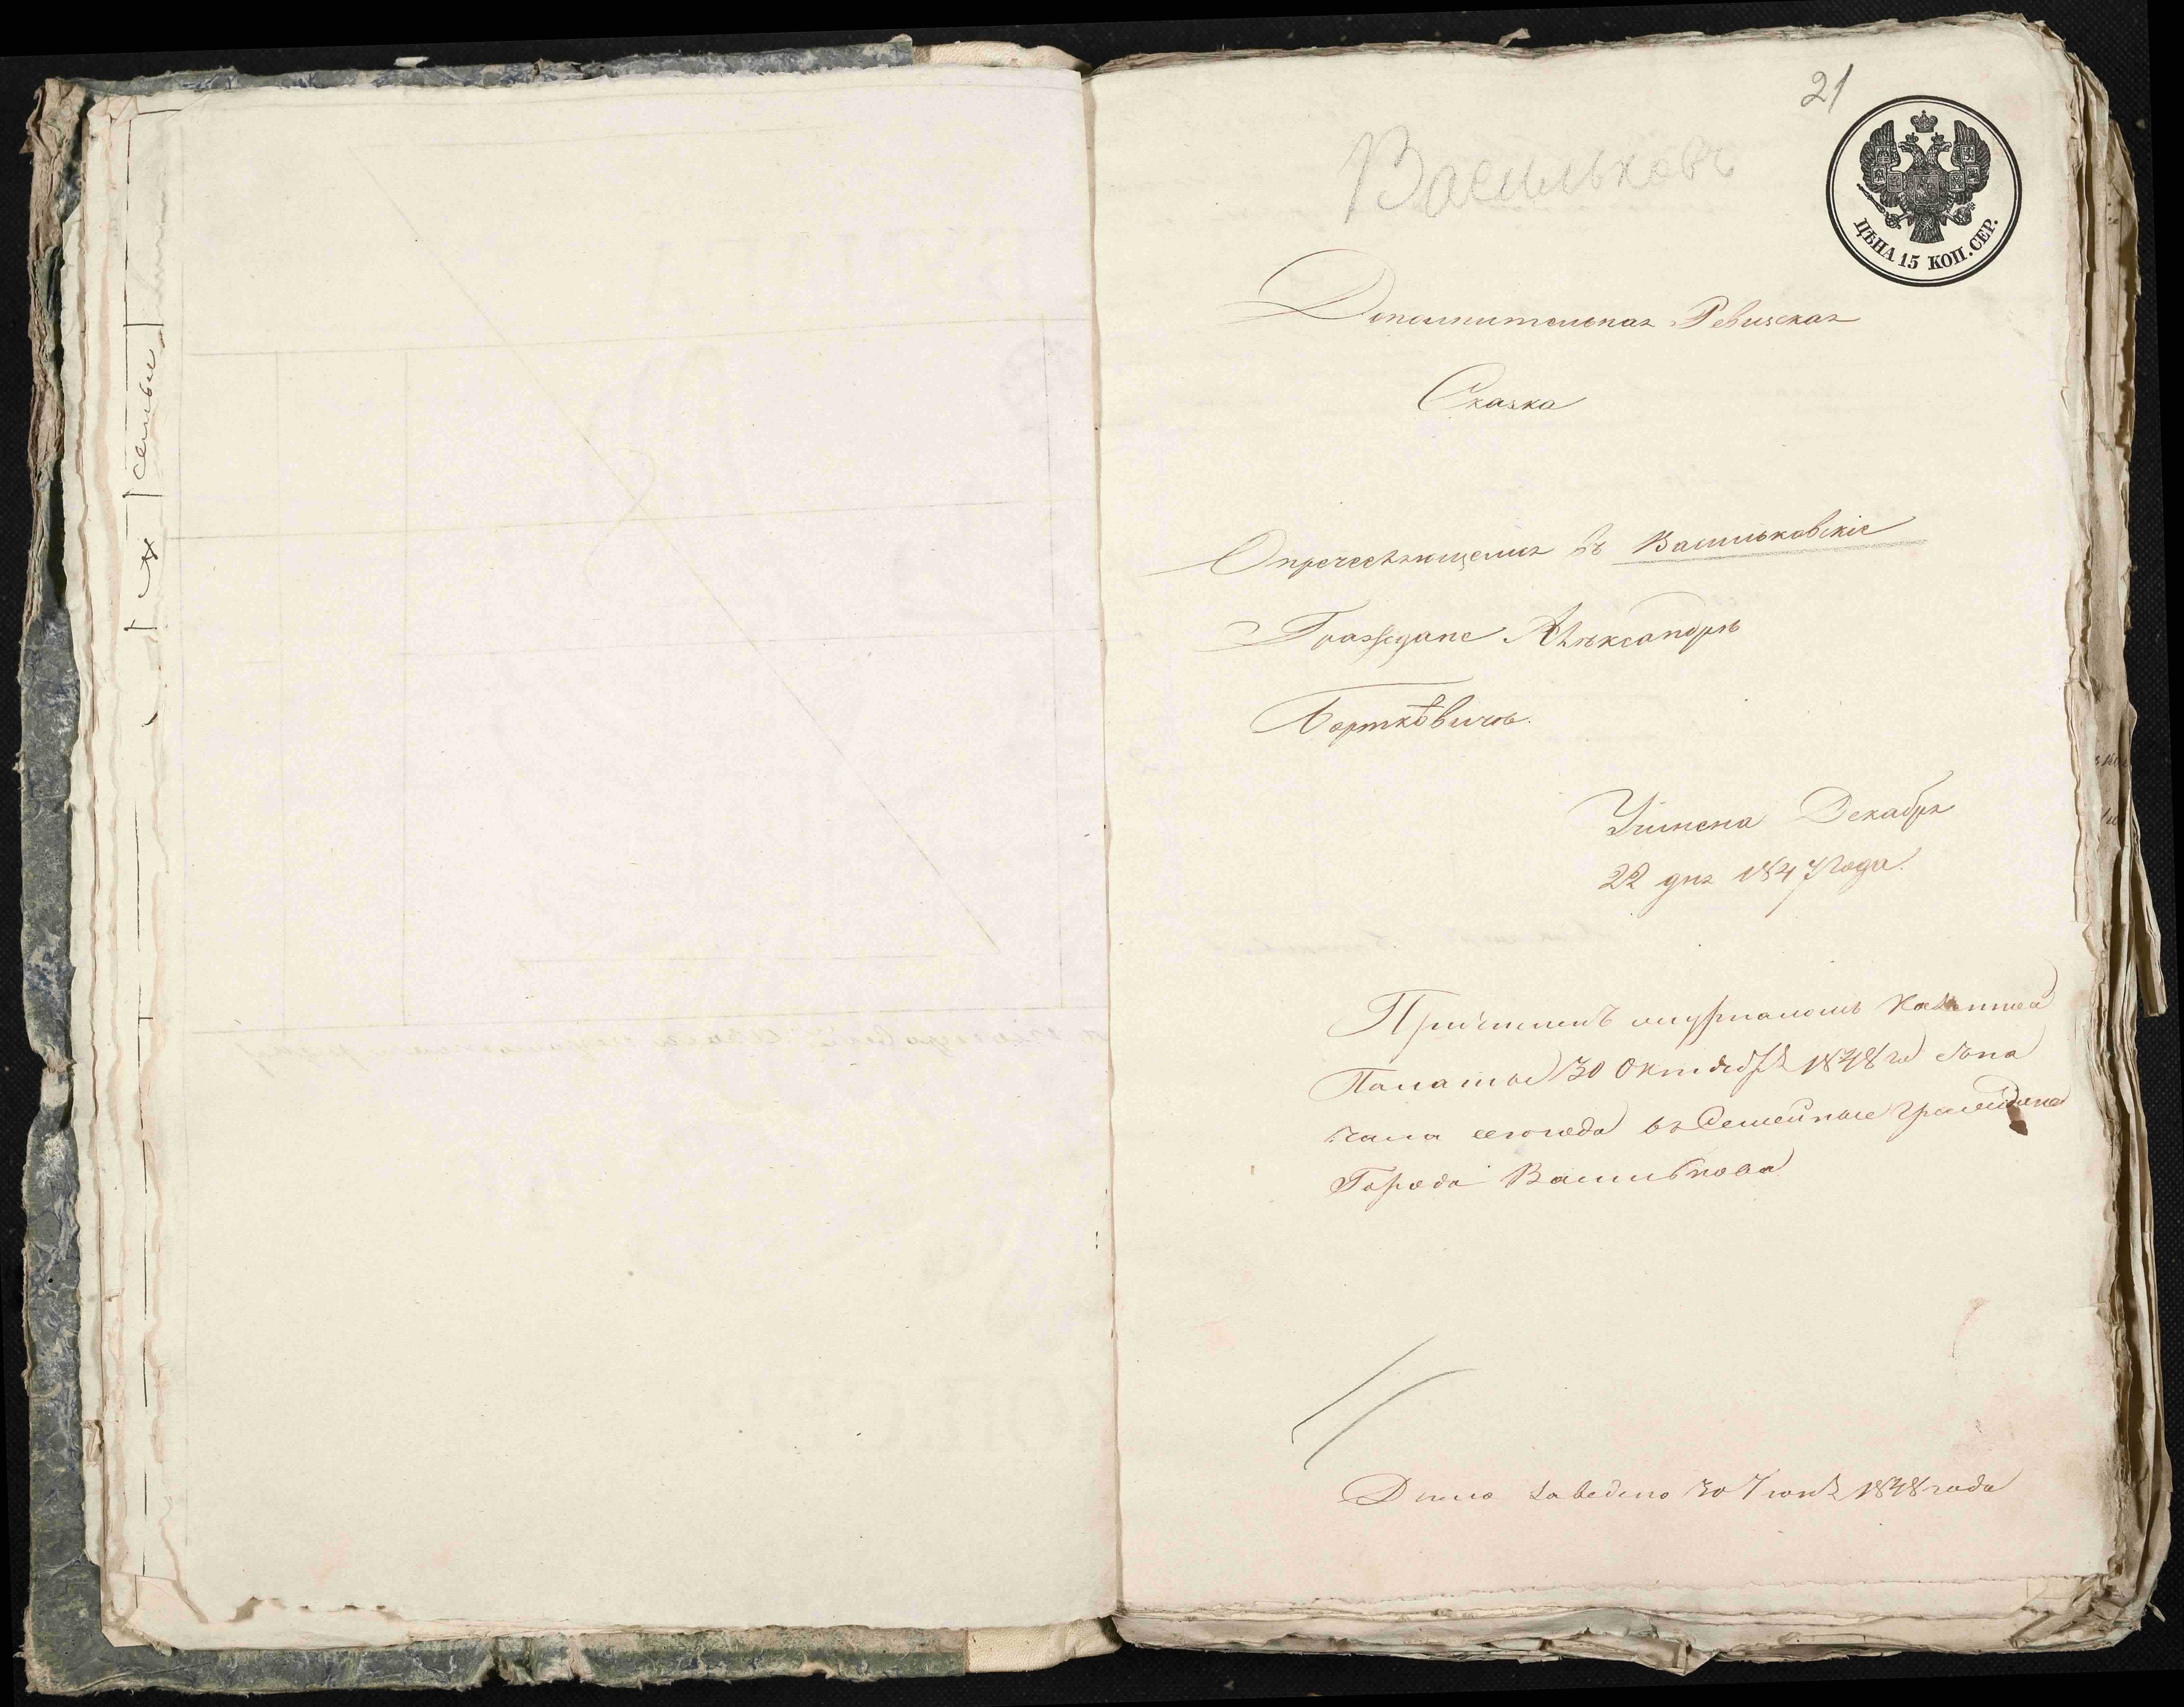 семьи
21
Васильковъ
ЦѢНА 15 КОП. СЕР.
Дополнительная Ревизская
Сказка
О пречесляющемся въ Васильковскіе
Граждане Алѣксандрѣ
Борткѣвичѣ.
Учинена Декабря
22 дня 1847 года.
Причисленъ журналомъ Казенной
Палаты 30 Октября 1848 го
чала сего года въ Семейные граждане
Города Василькова
Дело заведено 30 Іюня 1848 года